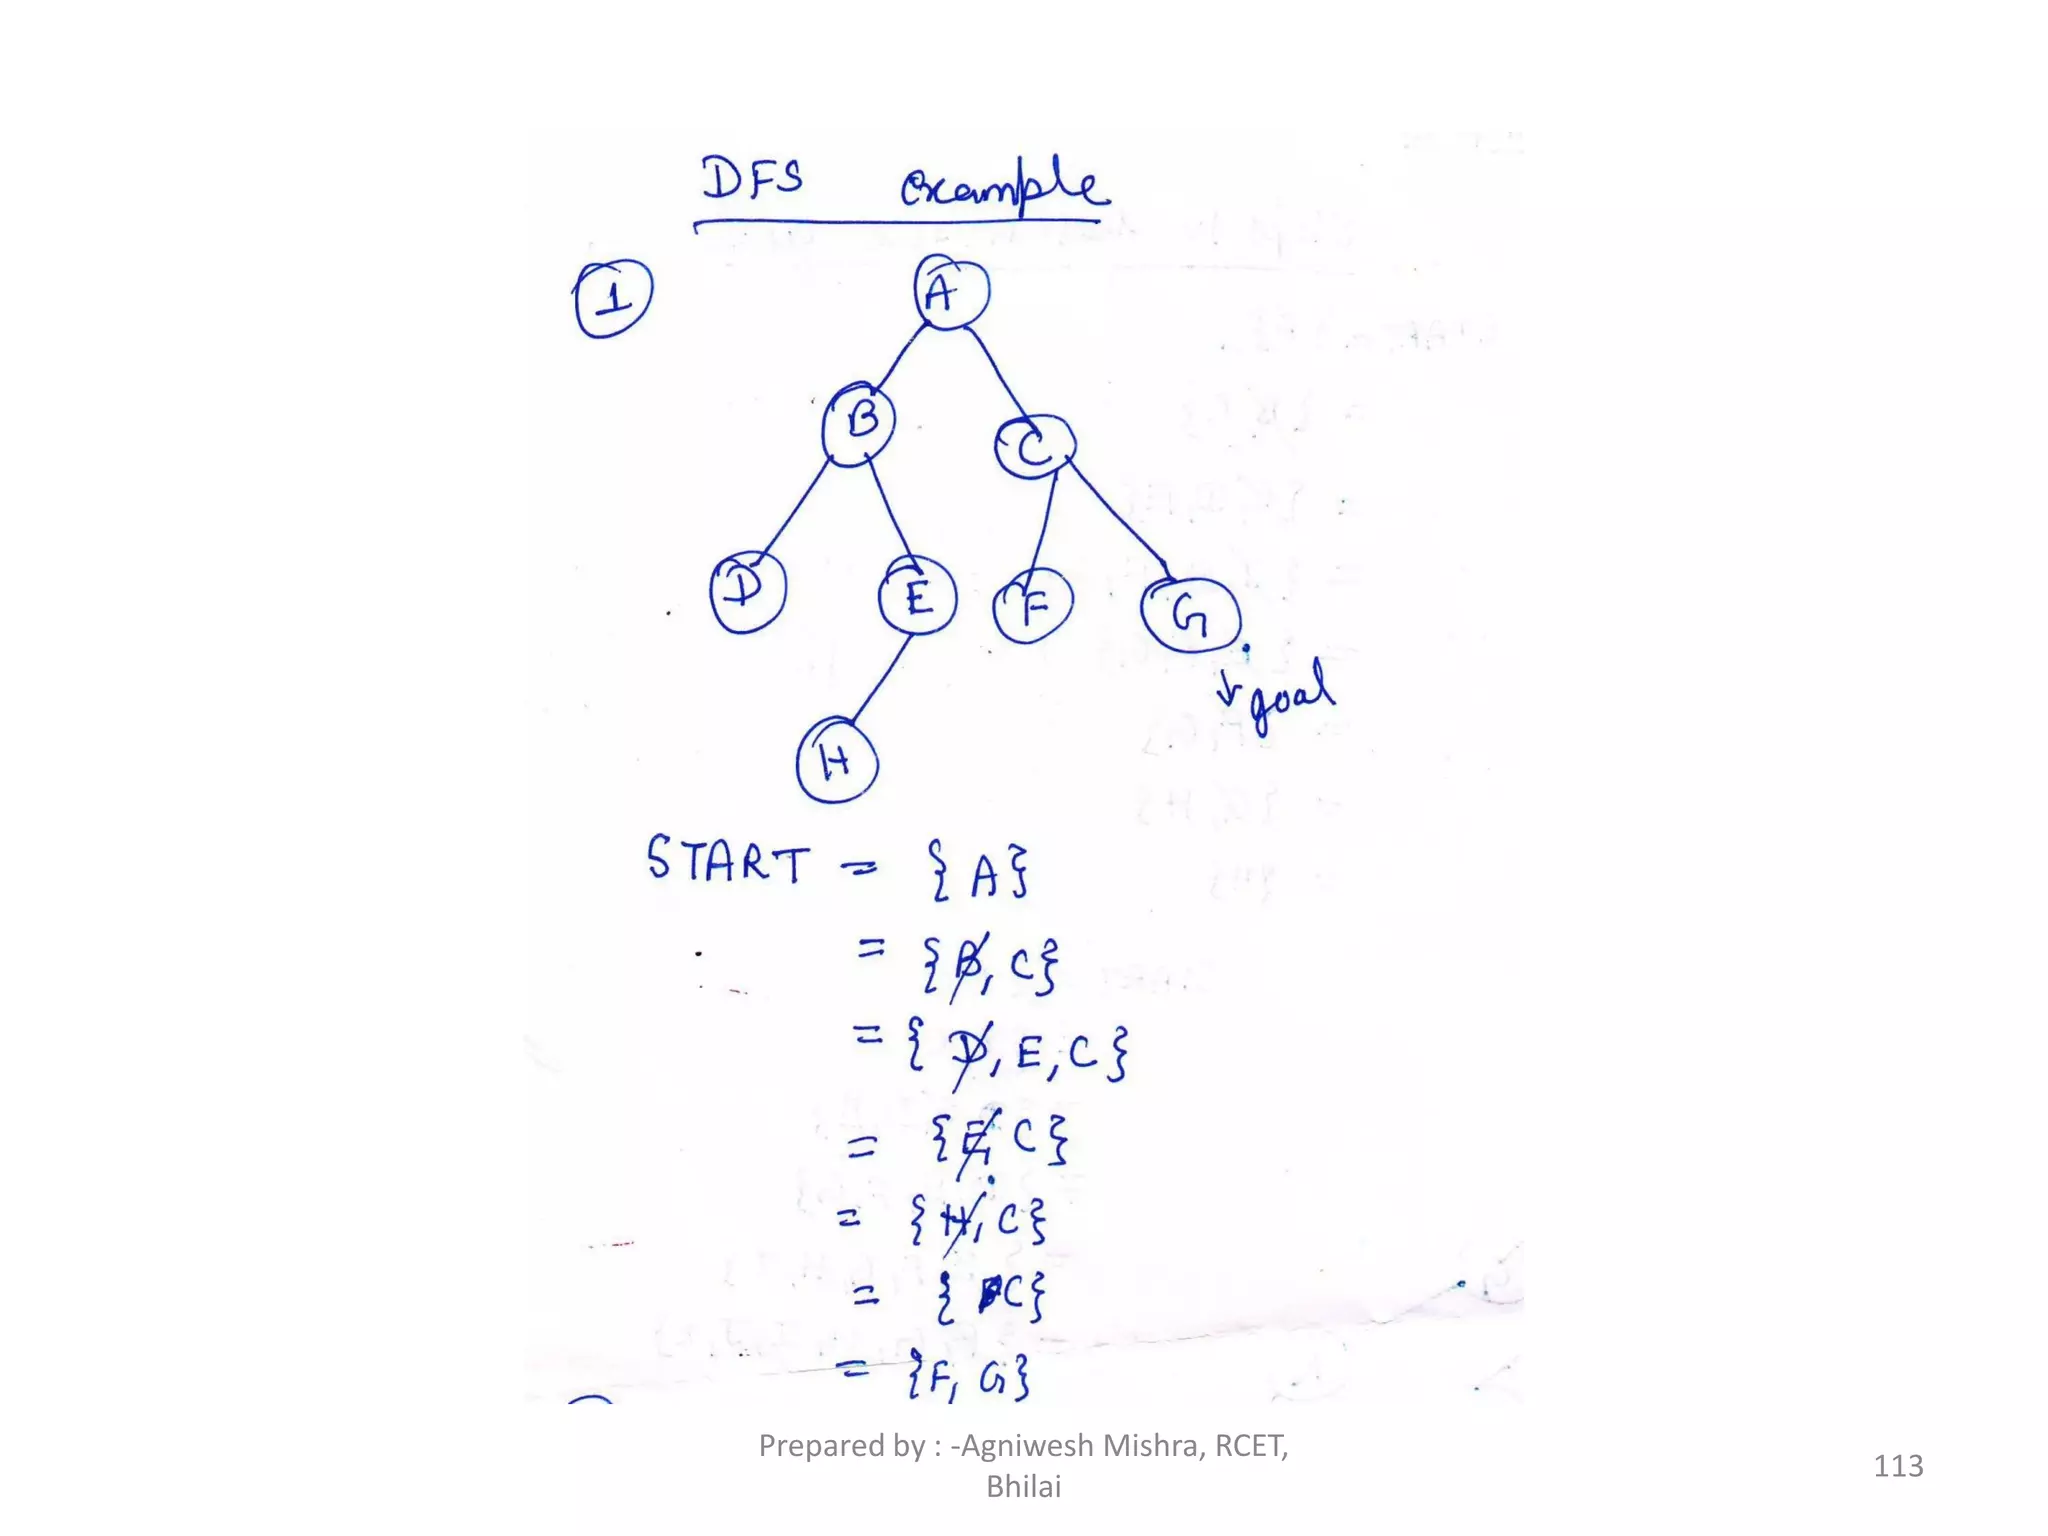 DFS example
1
A
B
C
D E F G
↓ goal
H
START = {A}
= {B, C}
= {D, E, C}
= {E, C}
= {H, C}
= { C}
= {F, G}
Prepared by : -Agniwesh Mishra, RCET,
Bhilai
113